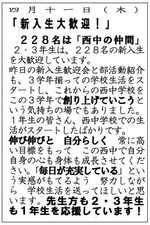 四月十一日(木)
「新入生大歓迎！」
228名は「西中の仲間」
2・3年生は、228名の新入生
を大歓迎しています。
昨日の新入生歓迎会と部活動紹介
も、3学年揃っての学校生活をス
タートし、これからの西中を
この3学年で創り上げていこうと
いう気持ちの場でもありました。
1年生の皆さん、西中での生
活がスタートしたばかりです。
伸び伸びと 自分らしく 常に高
い目標をもって この西中で自分
自身の心も身体も成長させてくださ
い。「毎日が充実している」とい
う実感がもてるよう 努力しなが
ら 学校生活を送ってほしいと思い
ます。先生方も2・3年生
も1年生を応援しています！